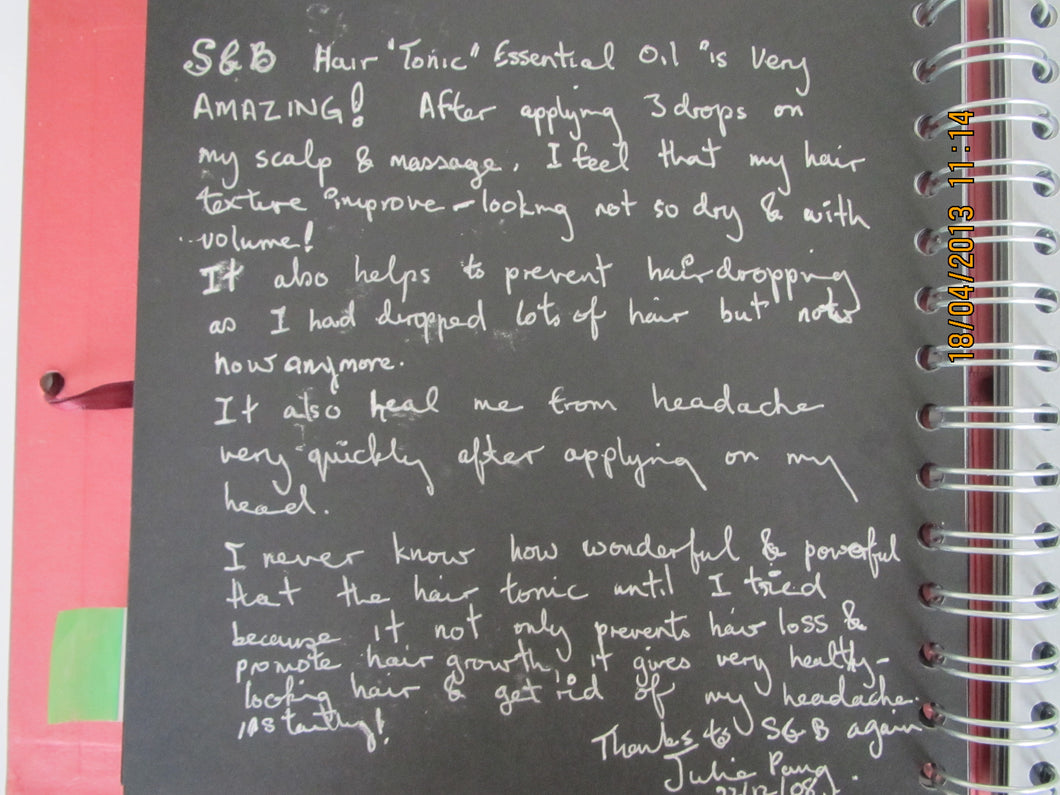 S&B Hair "Tonic" Essential Oil is Very
AMAZING! After applying 3 drops on
my scalp & massage, I feel that my hair
texture improve - looking not so dry & with
volume!
It also helps to prevent hair dropping
as I had dropped lots of hair but not
now anymore.
It also heal me from headache
very quickly after applying on my
head.
I never know how wonderful & powerful
that the hair tonic until I tried
because it not only prevents hair loss &
promote hair growth, it gives very healthy-
looking hair & get rid of my headache
instantly!
Thanks to S&B again
Julie Pang.
18/04/2013 11:14